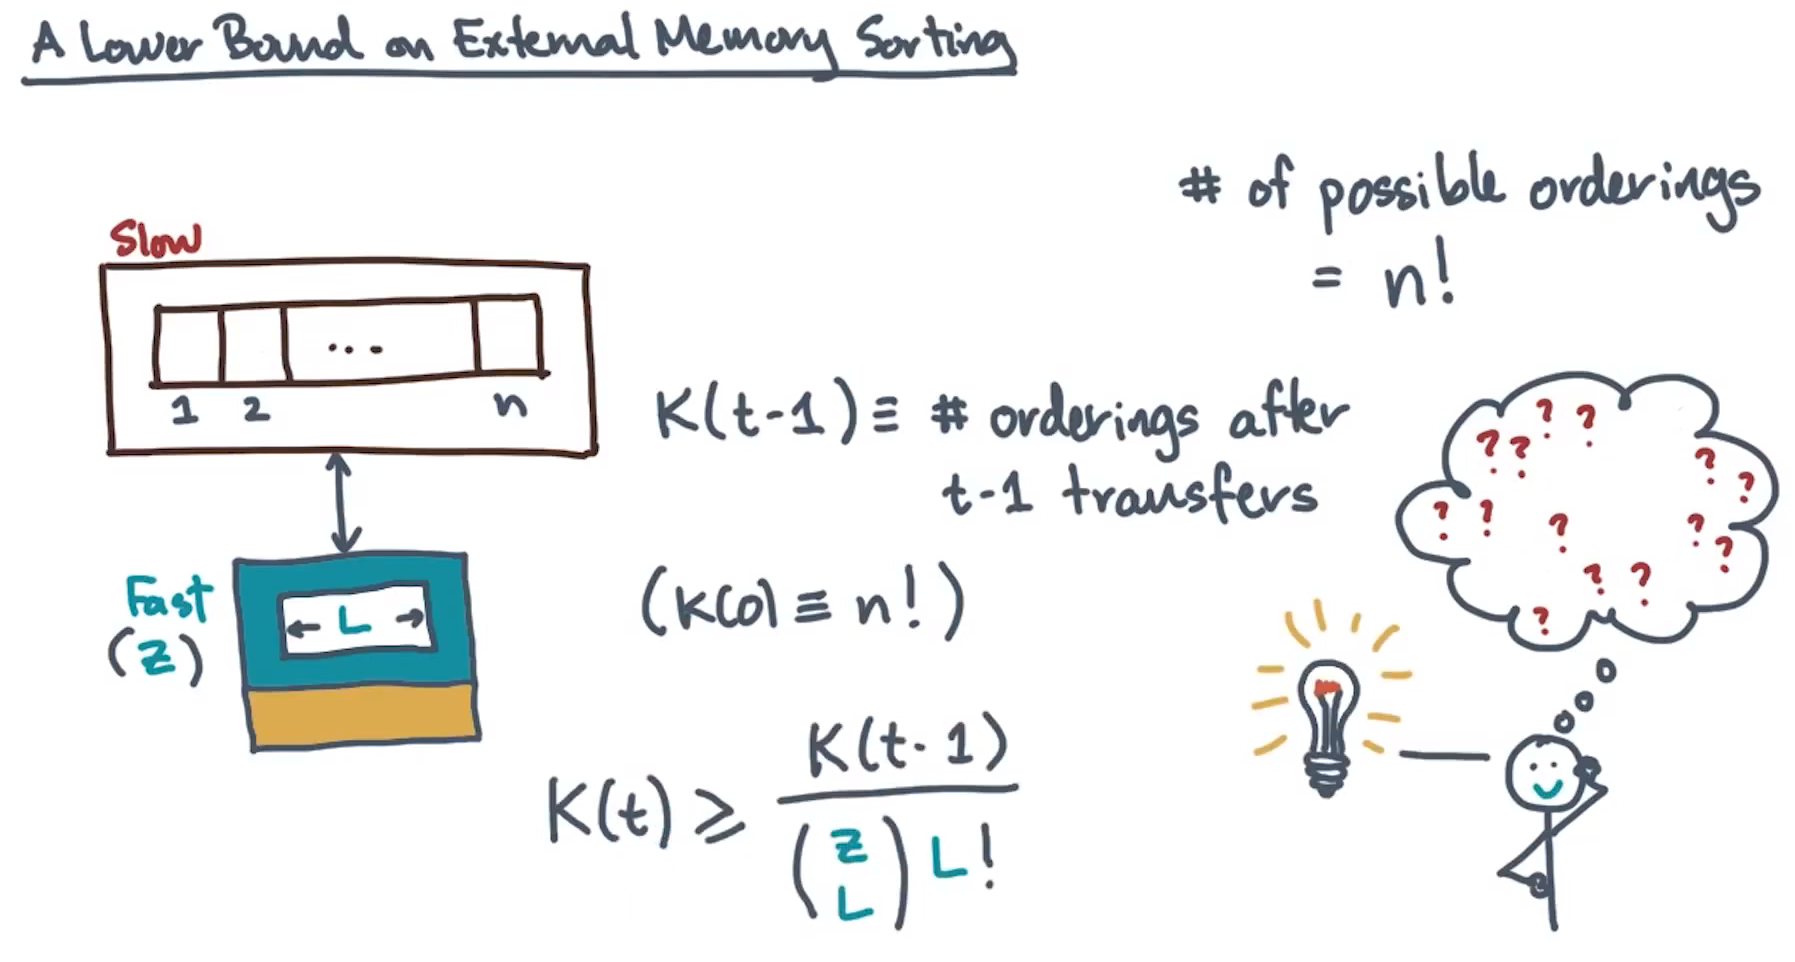 A Lower Bound on External Memory Sorting
# of possible orderings
= n!
Slow
...
1 2 n
K(t-1) ≡ # orderings after
t-1 transfers
Fast
(Z)
← L →
(K(0) ≡ n!)
K(t) ⩾ K(t-1)
(Z
L) L!
? ?
? ?
? ?
? ?
? ?
? ?
? ?
?